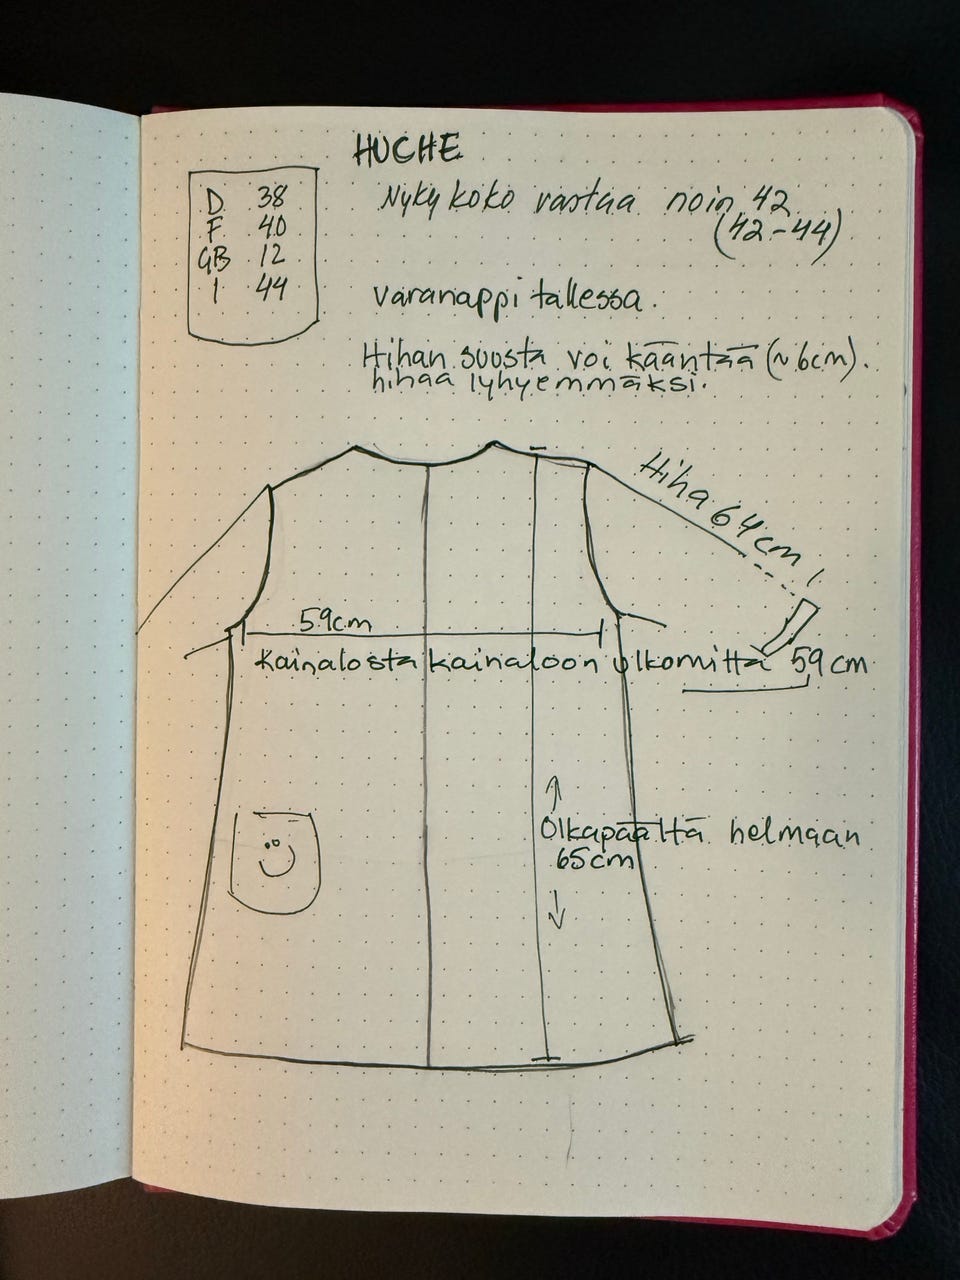 HUCHE
D 38
F 40
GB 12
I 44
Nyky koko vastaa noin 42
(42-44)
varanappi tallessa.
Hihan suusta voi kääntää (~6cm).
hihaa lyhyemmäksi.
Hiha 64cm
59cm
Kainalosta kainaloon ulkomitta 59cm
Olkapäältä helmaan
65cm